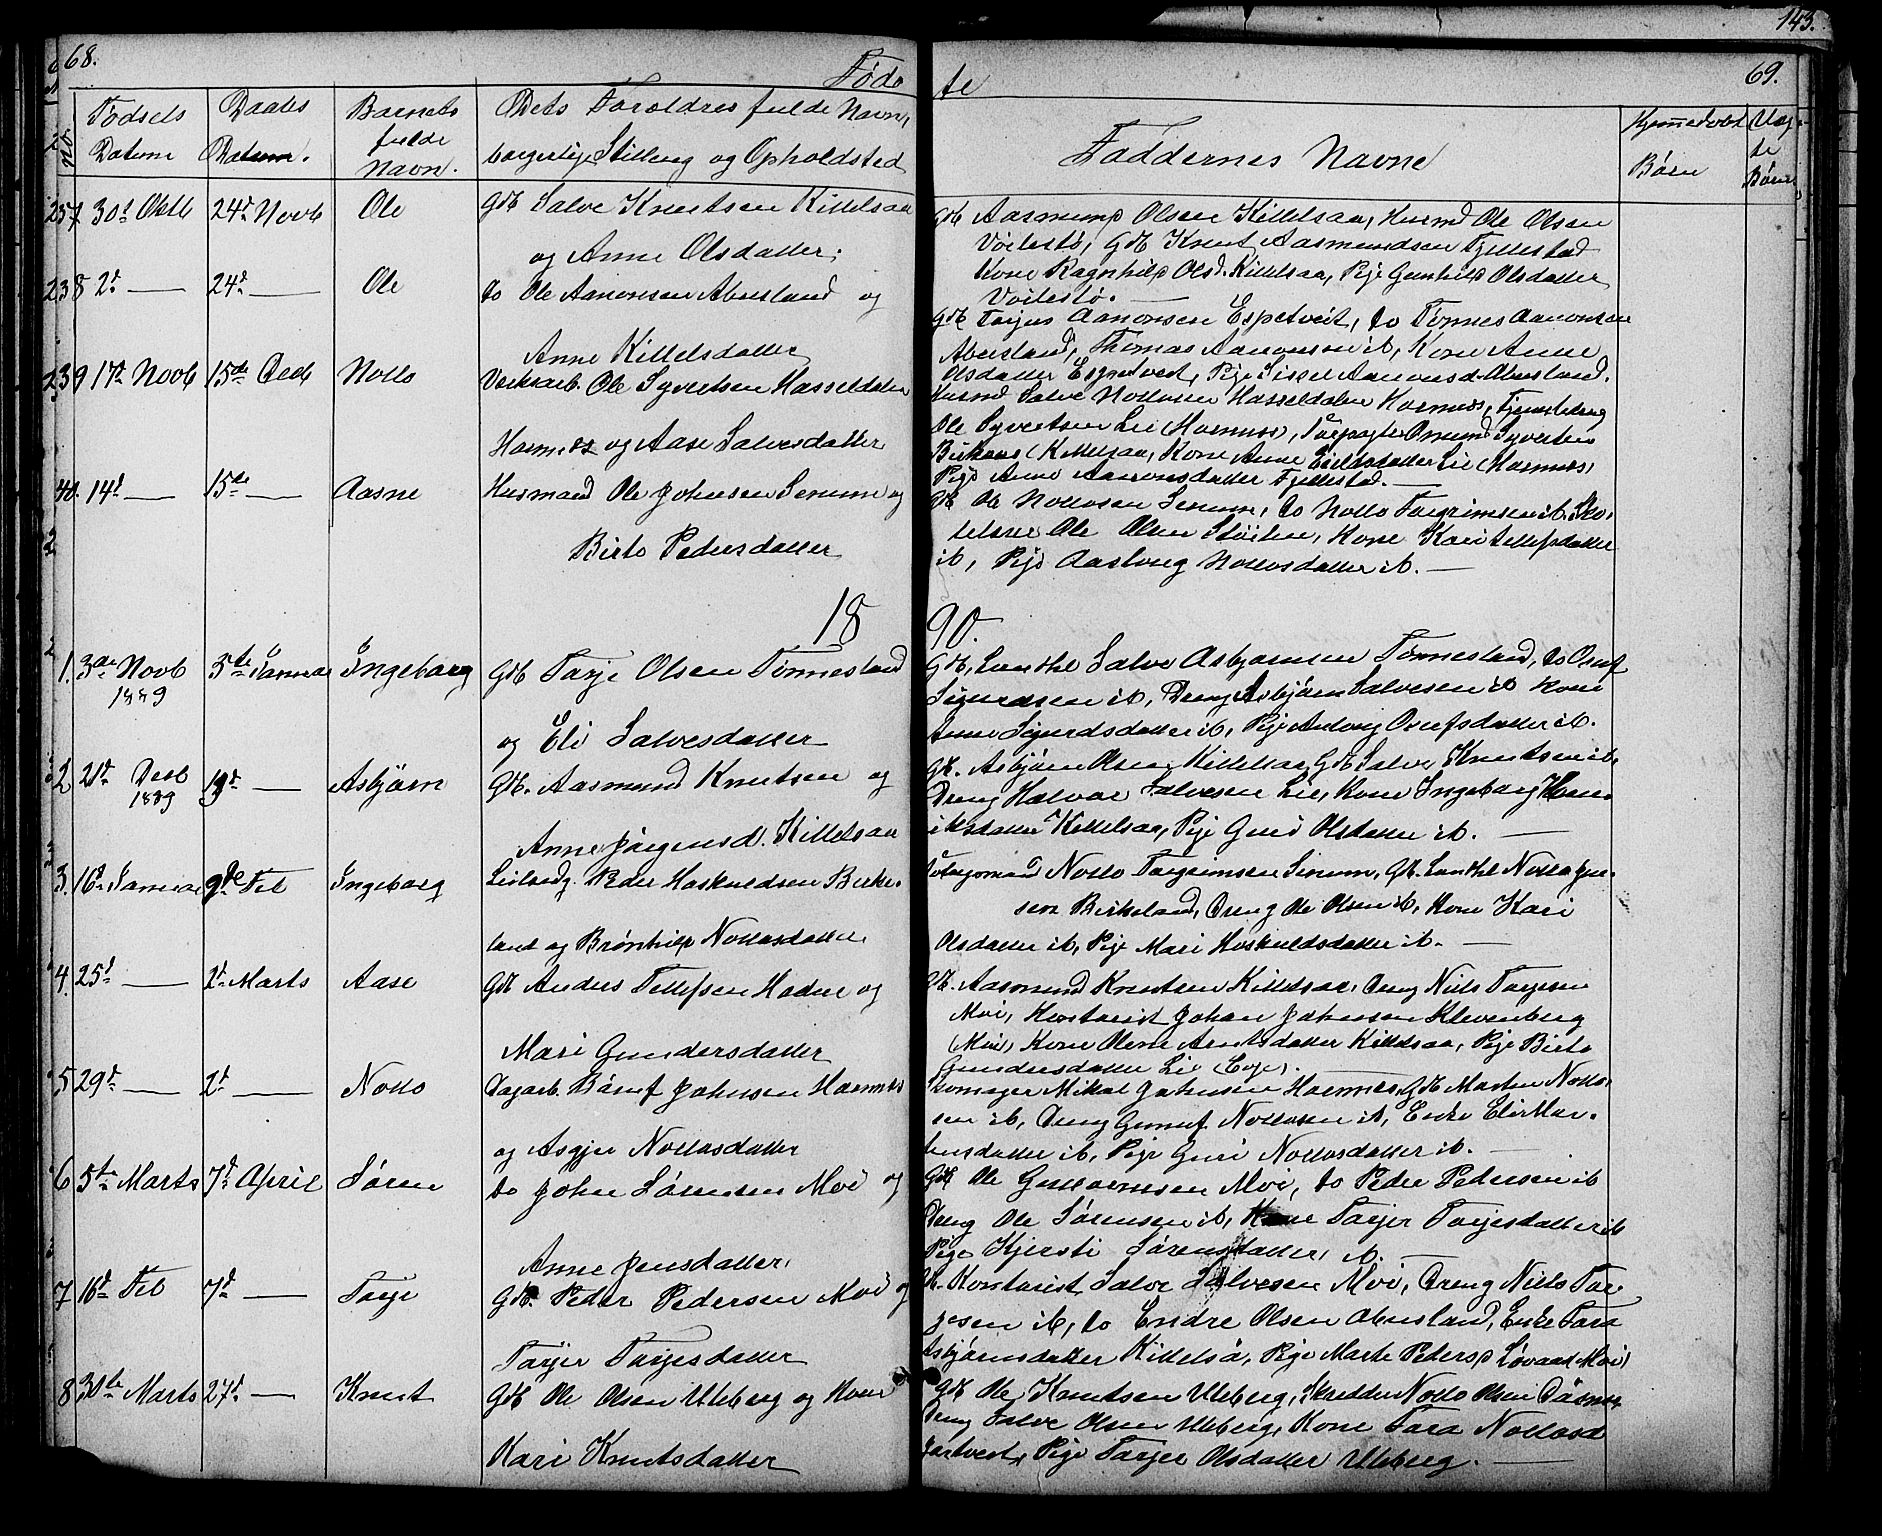 68.
Føde
Fødsels
Datum
Daabs
Datum.
Barnets
fulde
Navn.
Dets Forældres fulde Navn,
borgerlige Stilling og Opholdsted
237 30t Oktb 24d Novb Ole Gdb Salve Knutsen Killelsaa
og Anne Olsdatter;
238 2d — 24d — Ole do Ole Aanonsen Abusland og
Anne Killelsdatter
239 17d Novb 15de Decb Notto Værksarb. Ole Syvertsen Hasseldalen
Hornnes og Aase Salvesdatter
40. 14d — 15de — Aasne Husmand Ole Johnsen Senum og
Birte Pedersdatter
18
1. 3die Novb 5te Januar Ingeborg Gdb Tarje Olsen Tønnesland
1889
og Eli Salvesdatter
2 21d Desb — Asbjørn Gdb. Aasmund Knutsen og
1889
Anne Jørgensd. Killelsaa
3. 16d Januar 9de Feb Ingeborg Peder Hoskuldsen Birke-
land og Brønhild Nottosdatter
4. 25d — 2d Marts Aase Gdb Anders Tellefsen Hodne og
Mari Gundersdatter
5 29d — 2d — Notto Dagarb. Johnsen Hornnes
og Asgjer Nottosdatter
6 5te Marts 7d April Søren do John Sørensen Moi og
Anne Jensdatter,
7 16d Feb 7d — Tarje Gdb. Peder Pedersen Moi og
Tarjer Tarjesdatter
8 30te Marts 27d — Knut Gdb Ole Olsen Uleberg og Kone
Kari Knutsdatter
143.
69.
te
Faddernes Navne
Hjemmedøbt
Børn
Uæg-
te
Børn
Gdb Aasmund Olsen Killelsaa, Husmd Ole Olsen
Voilestø, Gdb Knut Aasmundsen Fjellestad
Kone Ragnhild Olsd. Killelsaa, Pige Gunhild Olsdatter
Voilestø. —
Gdb Tarjus Aanonsen Espetveit, do Tønnes Aanonsen
Abusland, Thomas Aanonsen ib, Kone Anne
Olsdatter Espetveit, Pige Sissel Aanonsd. Abusland.
Husmd Salve Nottosen Hasseldalen Hornnes,
Ole Syvertsen Lie (Hornnes), Syvertsen
(Killelsaa, Kone Anne Lie (Hornnes)
Pige Anne Aanonsdatter Fjellestad. —
Gdb Ole Nottosen Senum, do Notto Torgrimsen ib, Sko-
Ole Olsen Støilen, Kone Kari Tellefsdatter
ib, Pige Aaslaug Nottosdatter ib. —
90.
Gdb, Salve Asbjørnsen Tønnesland, do Osuf
Sigurdsen ib, Dreng Asbjørn Salvesen ib Kone
Anne Sigurdsdatter ib, Pige Osufsdatter ib.
Gdb. Asbjørn Olsen Killelsaa, Gdb Salve Knutsen ib,
Dreng Halvor Salvesen Lie, Kone Ingeborg Hen-
riksdatter Killelsaa, Pige Guri Olsdatter ib. —
Notto Torgrimsen Senum, Gdb. Notto
sen Birkeland, Dreng Ole Olsen ib, Kone Kari
Olsdatter ib, Pige Mari Hoskuldsdatter ib. —
Gdb. Aasmund Knutsen Killelsaa, Dreng Niels Tarjesen
Moi, Kontorist Johan Johnsen Klevenberg
(Moi), Kone Olene Arntsdatter Killelsaa, Pige Birte
Gundersdatter Lie (Evje). —
Skomager Mikal Johnsen Hornnes, Gdb Morten Notto-
sen ib, Dreng Gunuf Nottosen ib, Enke Eli Mor-
tensdatter ib, Pige Guri Nottosdatter ib. —
Gdb Ole Gunnarsen Moi, do Peder Pedersen ib
Dreng Ole Sørensen ib, Kone Tarjer Tarjesdatter ib
Pige Kjersti Sørensdatter ib. —
Kontorist Salve Salvesen Moi, Dreng Niels Tar-
jesen ib, do Endre Olsen Abusland, Enke Tora
Asbjørnsdatter Killelså, Pige Marte Pedersd (Moi)
Gdb Ole Knutsen Uleberg, Skredder Notto Olsen
Dreng Salve Olsen Uleberg, Kone Tora Nottosd
Pige Tarjer Olsdatter Uleberg. —